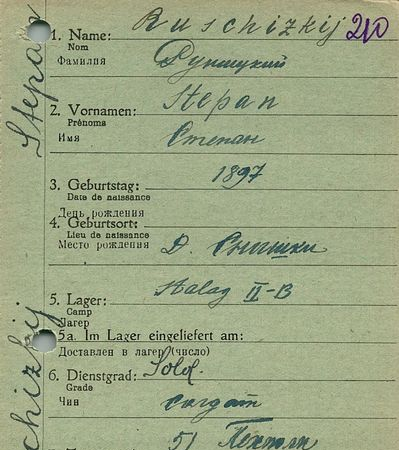 1. Name: Ruschizkij 210
Nom
Фамилия
2. Vornamen: Stepan
Prénoms
Имя Степан
1897
3. Geburtstag:
Date de naissance
День рождения
4. Geburtsort:
Lieu de naissance
Место рождения Д.
5. Lager: Stalag II-B
Camp
Лагер
5a. Im Lager eingeliefert am:
Доставлен в лагер (число)
6. Dienstgrad: Sold.
Grade
Чин солдат
51
Stepan
chizkij